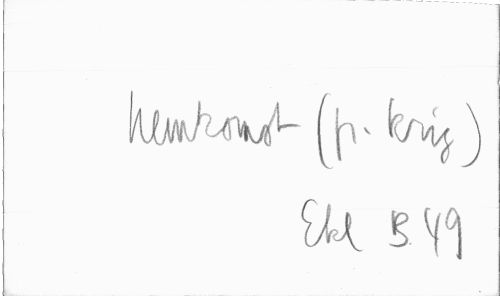 hemkomst (fr. krig)
Ekl B.49